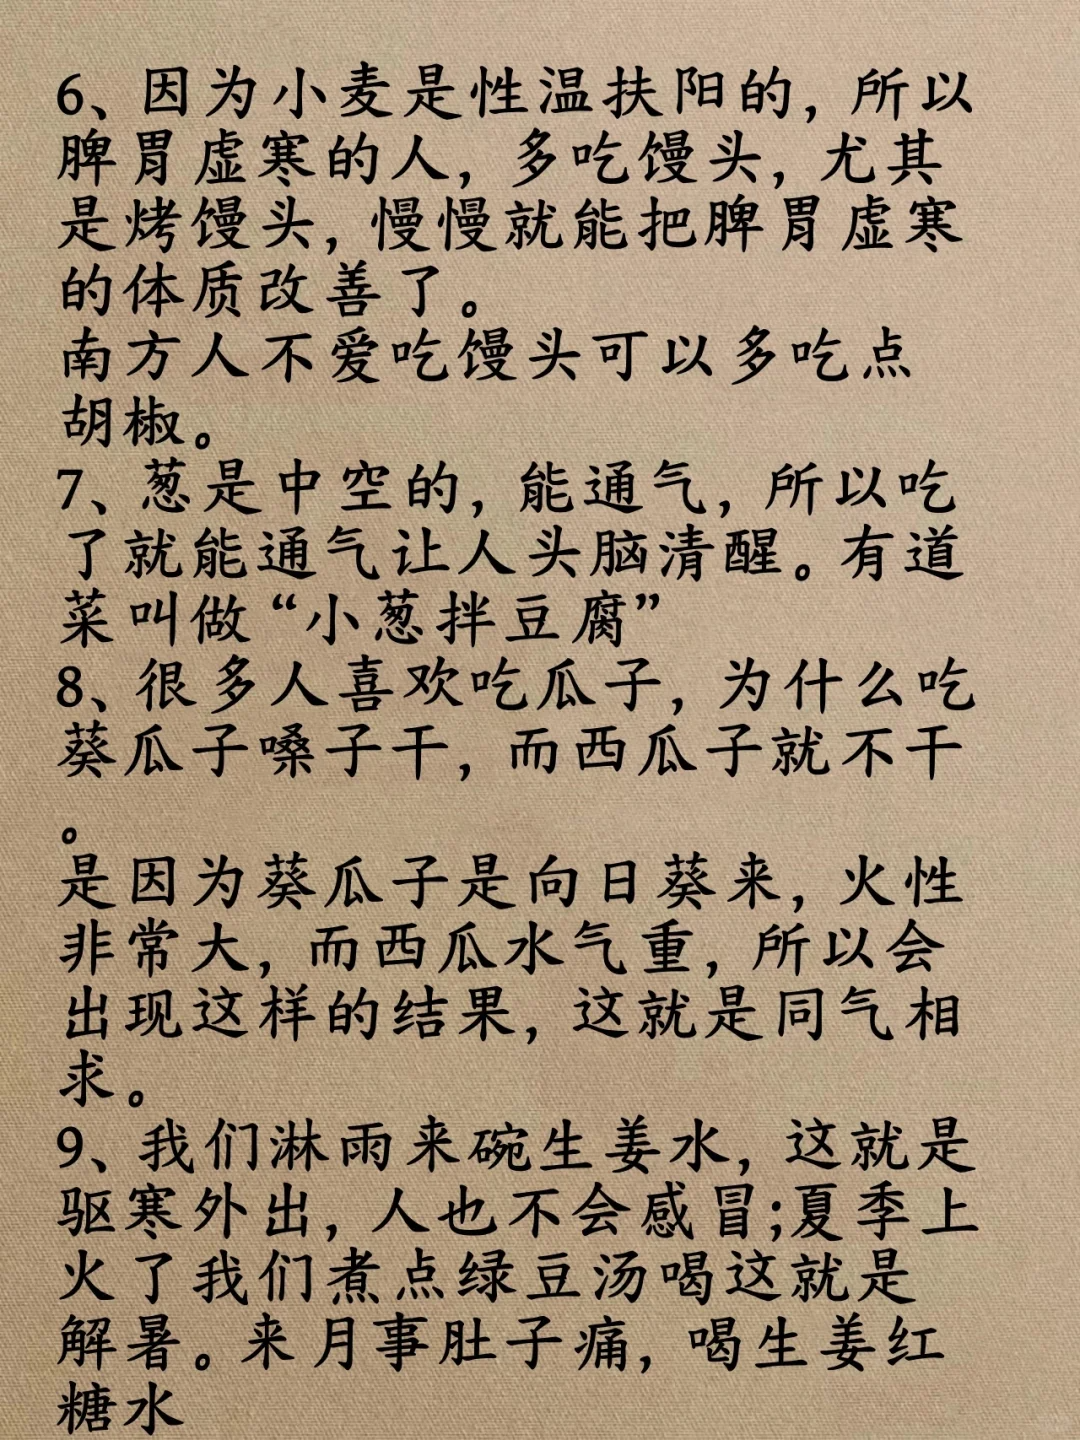 6、因为小麦是性温扶阳的，所以
脾胃虚寒的人，多吃馒头，尤其
是烤馒头，慢慢就能把脾胃虚寒
的体质改善了。
南方人不爱吃馒头可以多吃点
胡椒。
7、葱是中空的，能通气，所以吃
了就能通气让人头脑清醒。有道
菜叫做“小葱拌豆腐”
8、很多人喜欢吃瓜子，为什么吃
葵瓜子嗓子干，而西瓜子就不干
。
是因为葵瓜子是向日葵来，火性
非常大，而西瓜水气重，所以会
出现这样的结果，这就是同气相
求。
9、我们淋雨来碗生姜水，这就是
驱寒外出，人也不会感冒;夏季上
火了我们煮点绿豆汤喝这就是
解暑。来月事肚子痛，喝生姜红
糖水